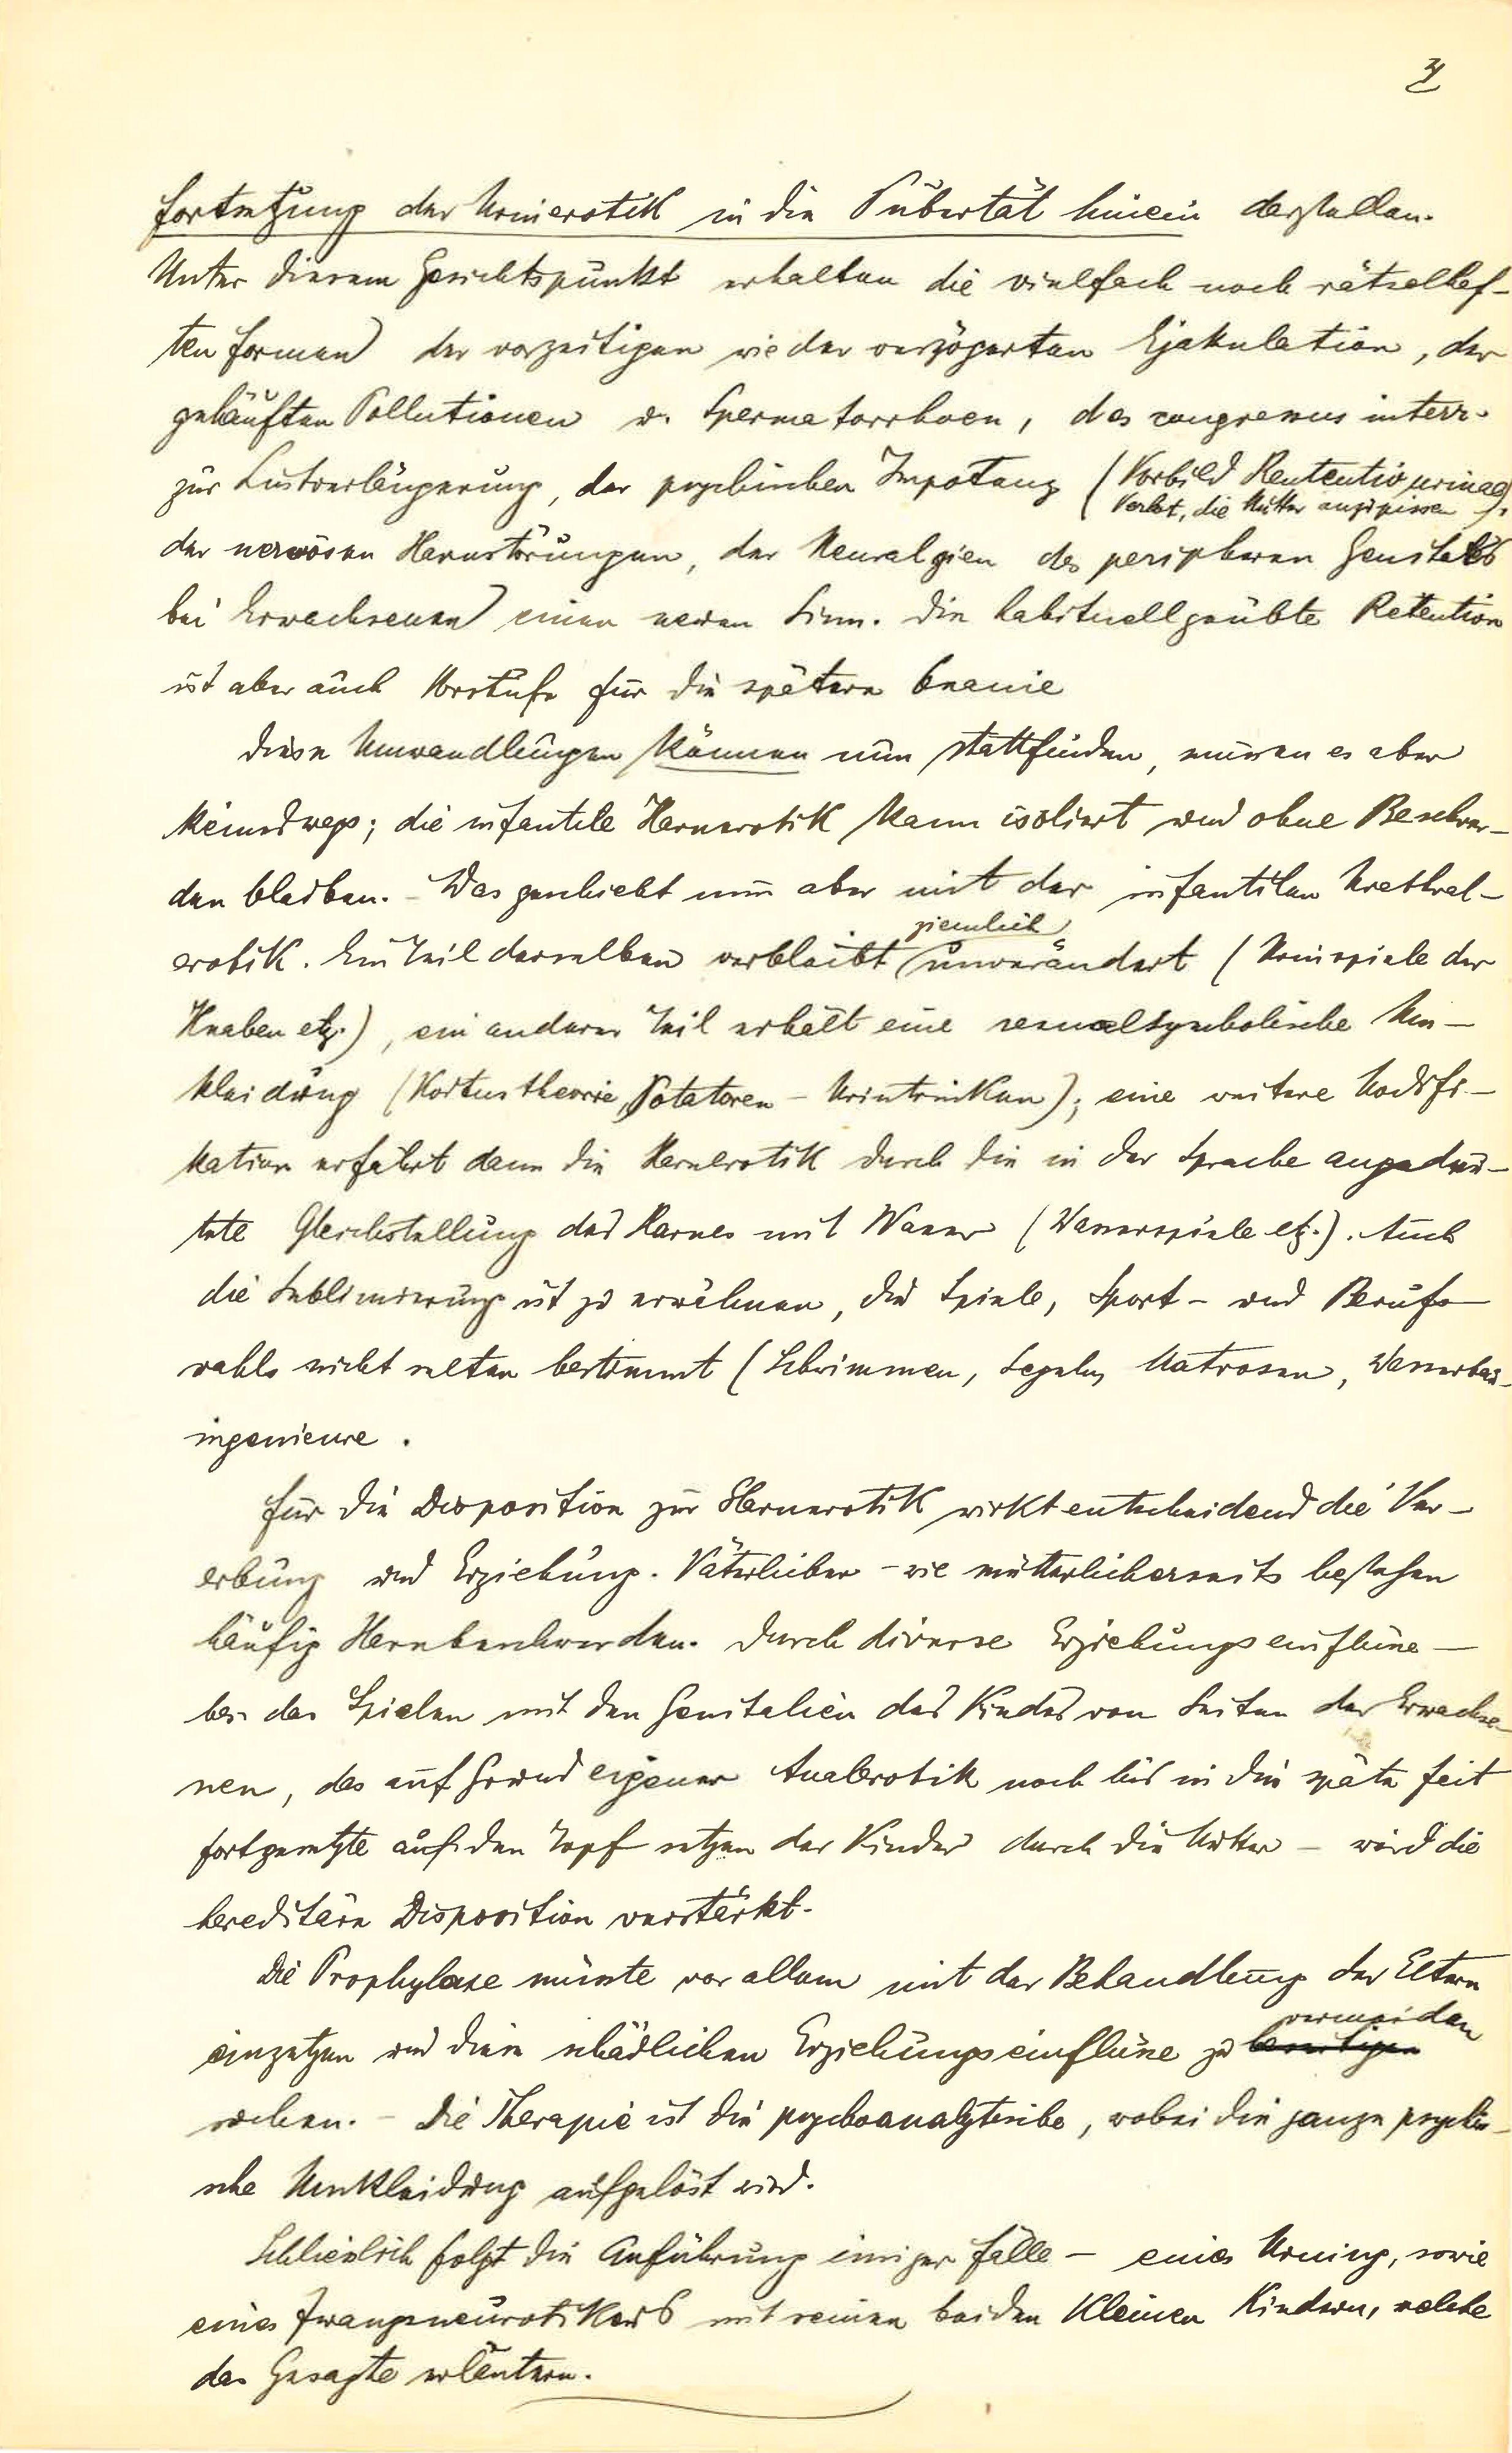 4
Fortsetzung der Urinerotik in die Pubertät hinein darstellen.
Unter diesem Gesichtspunkt erhalten die vielfach noch rätselhaf-
ten Formen der vorzeitigen wie der verzögerten Ejakulation, der
gehäuften Pollutionen u. Spermatorrhoen, des congressus interr.
zur Lustverlängerung, der psychischen Impotenz (Vorbild Rententio urinae)
Verbot, die Mutter anzupissen),
der nervösen Harnstörungen, der Neuralgien des peripheren Genitales
bei Erwachsenen einen neuen Sinn. Die habituell geübte Retention
ist aber auch Vorstufe für die spätere Onanie
Diese Umwandlungen können nun stattfinden, müssen es aber
keineswegs; die infantile Harnerotik kann isoliert und ohne Beschwer-
den bleiben. - Was geschieht nun aber mit der infantilen Urethral-
erotik. Ein Teil derselben verbleibt ziemlich unverändert (Urinspiele der
Knaben etz.), ein anderer Teil erhält eine sexualsymbolische Um-
kleidung (Koitustheorie, Potatoren - Urintrinken); eine weitere Modifi-
kation erfährt dann die Harnerotik durch die in der Sprache angedeu-
tete Gleichstellung des Harnes mit Wasser (Wasserspiele etz.). Auch
die Sublimierung ist zu erwähnen, die Spiele, Sport - und Berufs-
wahls nicht selten bestimmt (Schwimmen, Segeln, Matrosen, Wasserbau-
ingenieure .
Für die Disposition zur Harnerotik wirkt entscheidend die Ver-
erbung und Erziehung. Väterlicher - wie mütterlicherseits bestehen
häufig Harnbeschwerden. Durch diverse Erziehungseinflüsse -
bes. das Spielen mit den Genitalien des Kindes von Seiten der Erwachse-
nen, das auf Grund eigener Analerotik noch bis in die späte Zeit
fortgesetzte auf den Topf setzen der Kinder durch die Mutter - wird die
hereditäre Disposition verstärkt.
Die Prophylaxe müsste vor allem mit der Behandlung der Eltern
einsetzen und diese schädlichen Erziehungseinflüsse zu beseitigen vermeiden
suchen. - Die Therapie ist die psychoanalytische, wobei die ganze psychi-
sche Umkleidung aufgelöst wird.
Schliesslich folgt die Anführung einiger Fälle - eines Urning, sowie
eines Zwangsneurotikers mit seinen beiden kleinen Kindern, welche
das Gesagte erläutern.